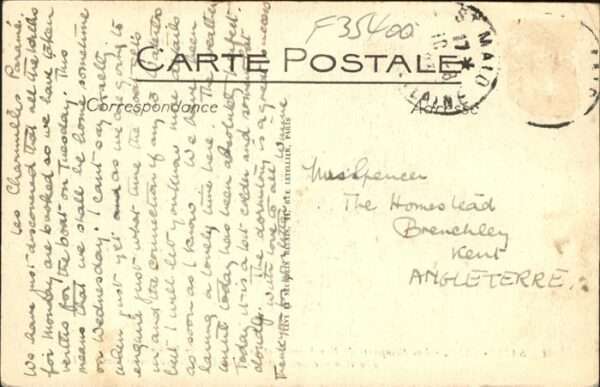 F35400
CARTE POSTALE
Correspondance
Adresse
Les Charmilles Paramé.
We have just discovered that all the berths
for Monday are booked so we have taken
berths for the boat on Tuesday. This
means that we shall be home sometime
on Wednesday. I can't say really
when just yet and as we are going to
enquire just what time the boat gets
in and the connection if any to
but I will let you know more details
as soon as I know. We have been
having a lovely time here. The weather
until today has been absolutely perfect.
Today it is a bit colder and somewhat
cloudy. The dormitory is a great success
with love to all
Mrs Spencer
The Homestead
Brenchley
Kent
ANGLETERRE.